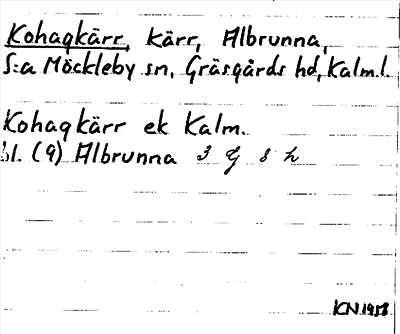 Kohagkärr, kärr, Albrunna,
S:a Möckleby sn, Gräsgårds hd, Kalm.l.
Kohagkärr ek Kalm.
bl. (9) Albrunna 3 g 8 h
KN 1958